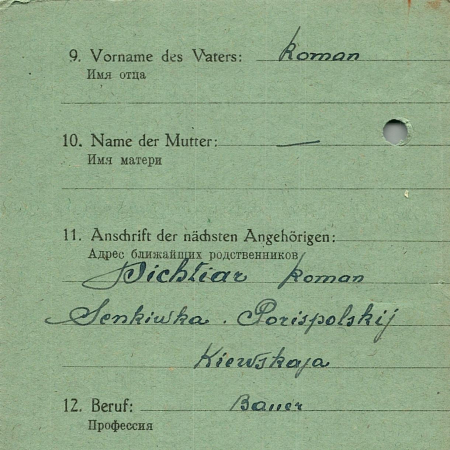 9. Vorname des Vaters: Roman
Имя отца
10. Name der Mutter: —
Имя матери
11. Anschrift der nächsten Angehörigen:
Адрес ближайших родственников
Dichtiar Roman
Senkiwka. Porispolskij
Kiewskaja
12. Beruf: Bauer
Профессия